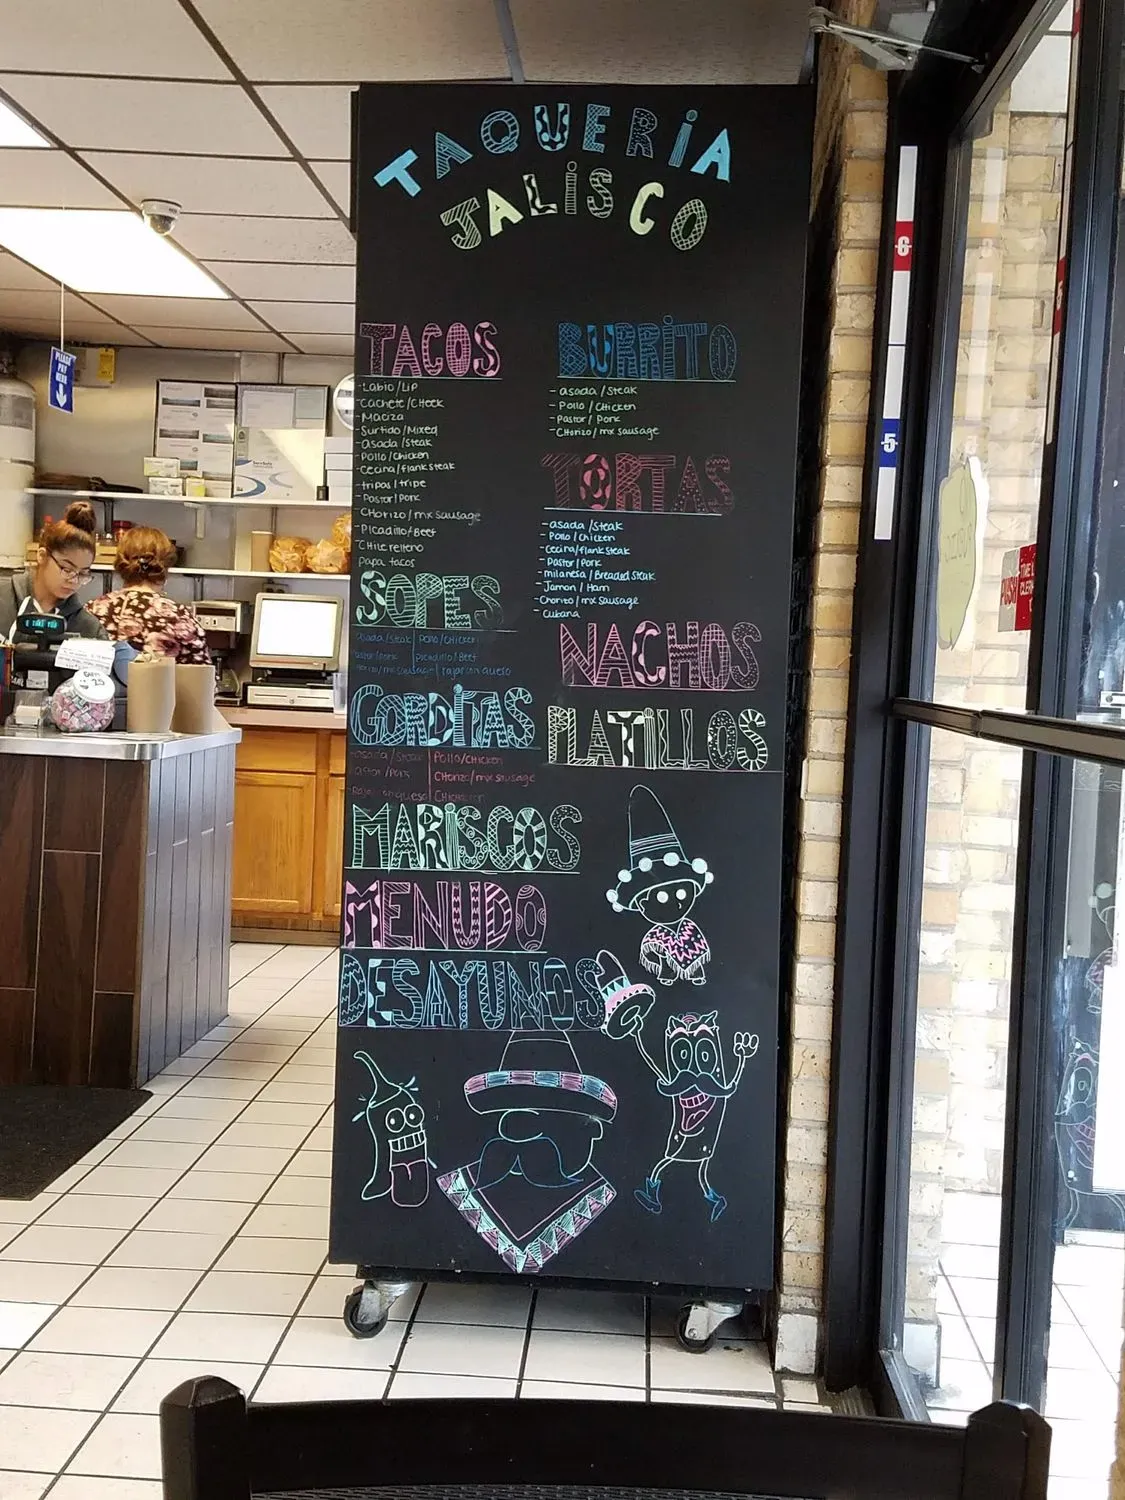 TAQUERiA
JALiSCO
TACOS
-Labio/Lip
-Cachete/Cheek
-Maciza
-Surtido/Mixed
-asada/Steak
-Pollo/Chicken
-Cecina/flank steak
-tripas/tripe
-Pastor/Pork
-Chorizo/mx sausage
-Picadillo/Beef
-Chile relleno
Papa tacos
SOPES
asada/Steak | Pollo/Chicken
Picadillo/Beef
rajas con queso
GORDITAS
asada/Steak | Pollo/Chicken
Pastor/Pork | Chorizo/mx sausage
MARiSCOS
MENUDO
DESAYUNOS
BURRiTO
-asada/Steak
-Pollo/Chicken
-Pastor/Pork
-Chorizo/mx sausage
TORTAS
-asada/Steak
-Pollo/Chicken
-Cecina/flank steak
-Pastor/Pork
-milanesa/Breaded Steak
-Jamon/Ham
-Chorizo/mx sausage
-Cubana
NACHOS
PLATiLLOS
PLEASE
PAY
HERE
6
5
PUSH